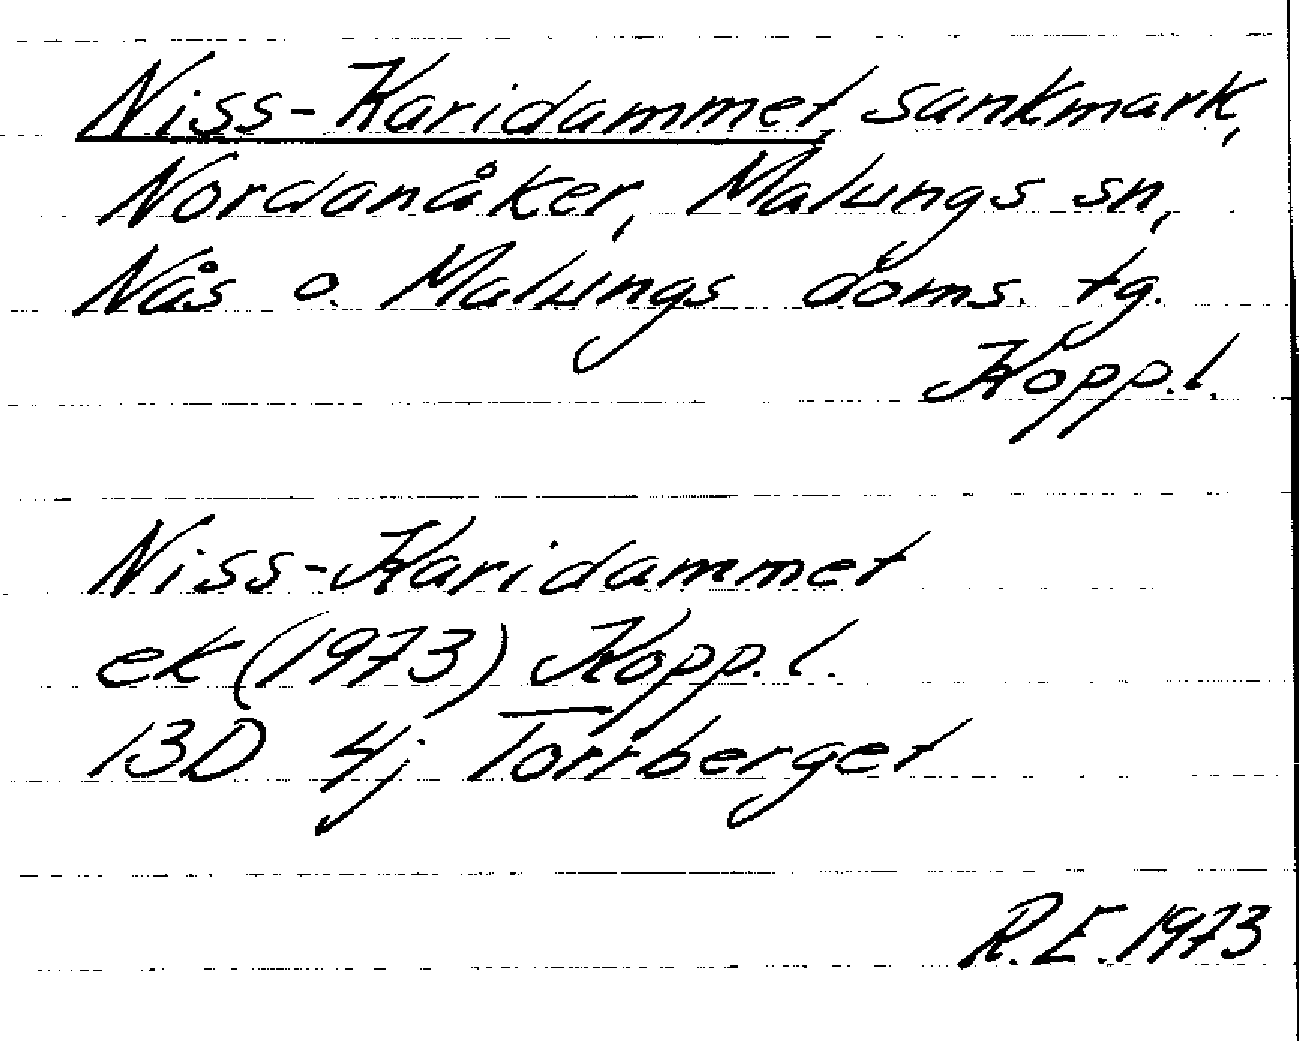 Niss-Karidammet, sankmark,
Nordanåker, Malungs sn,
Nås o. Malungs doms. tg.
Kopp. l.
Niss-Karidammet
ek (1973) Kopp. l.
13D 4j Torrberget
R.E. 1973